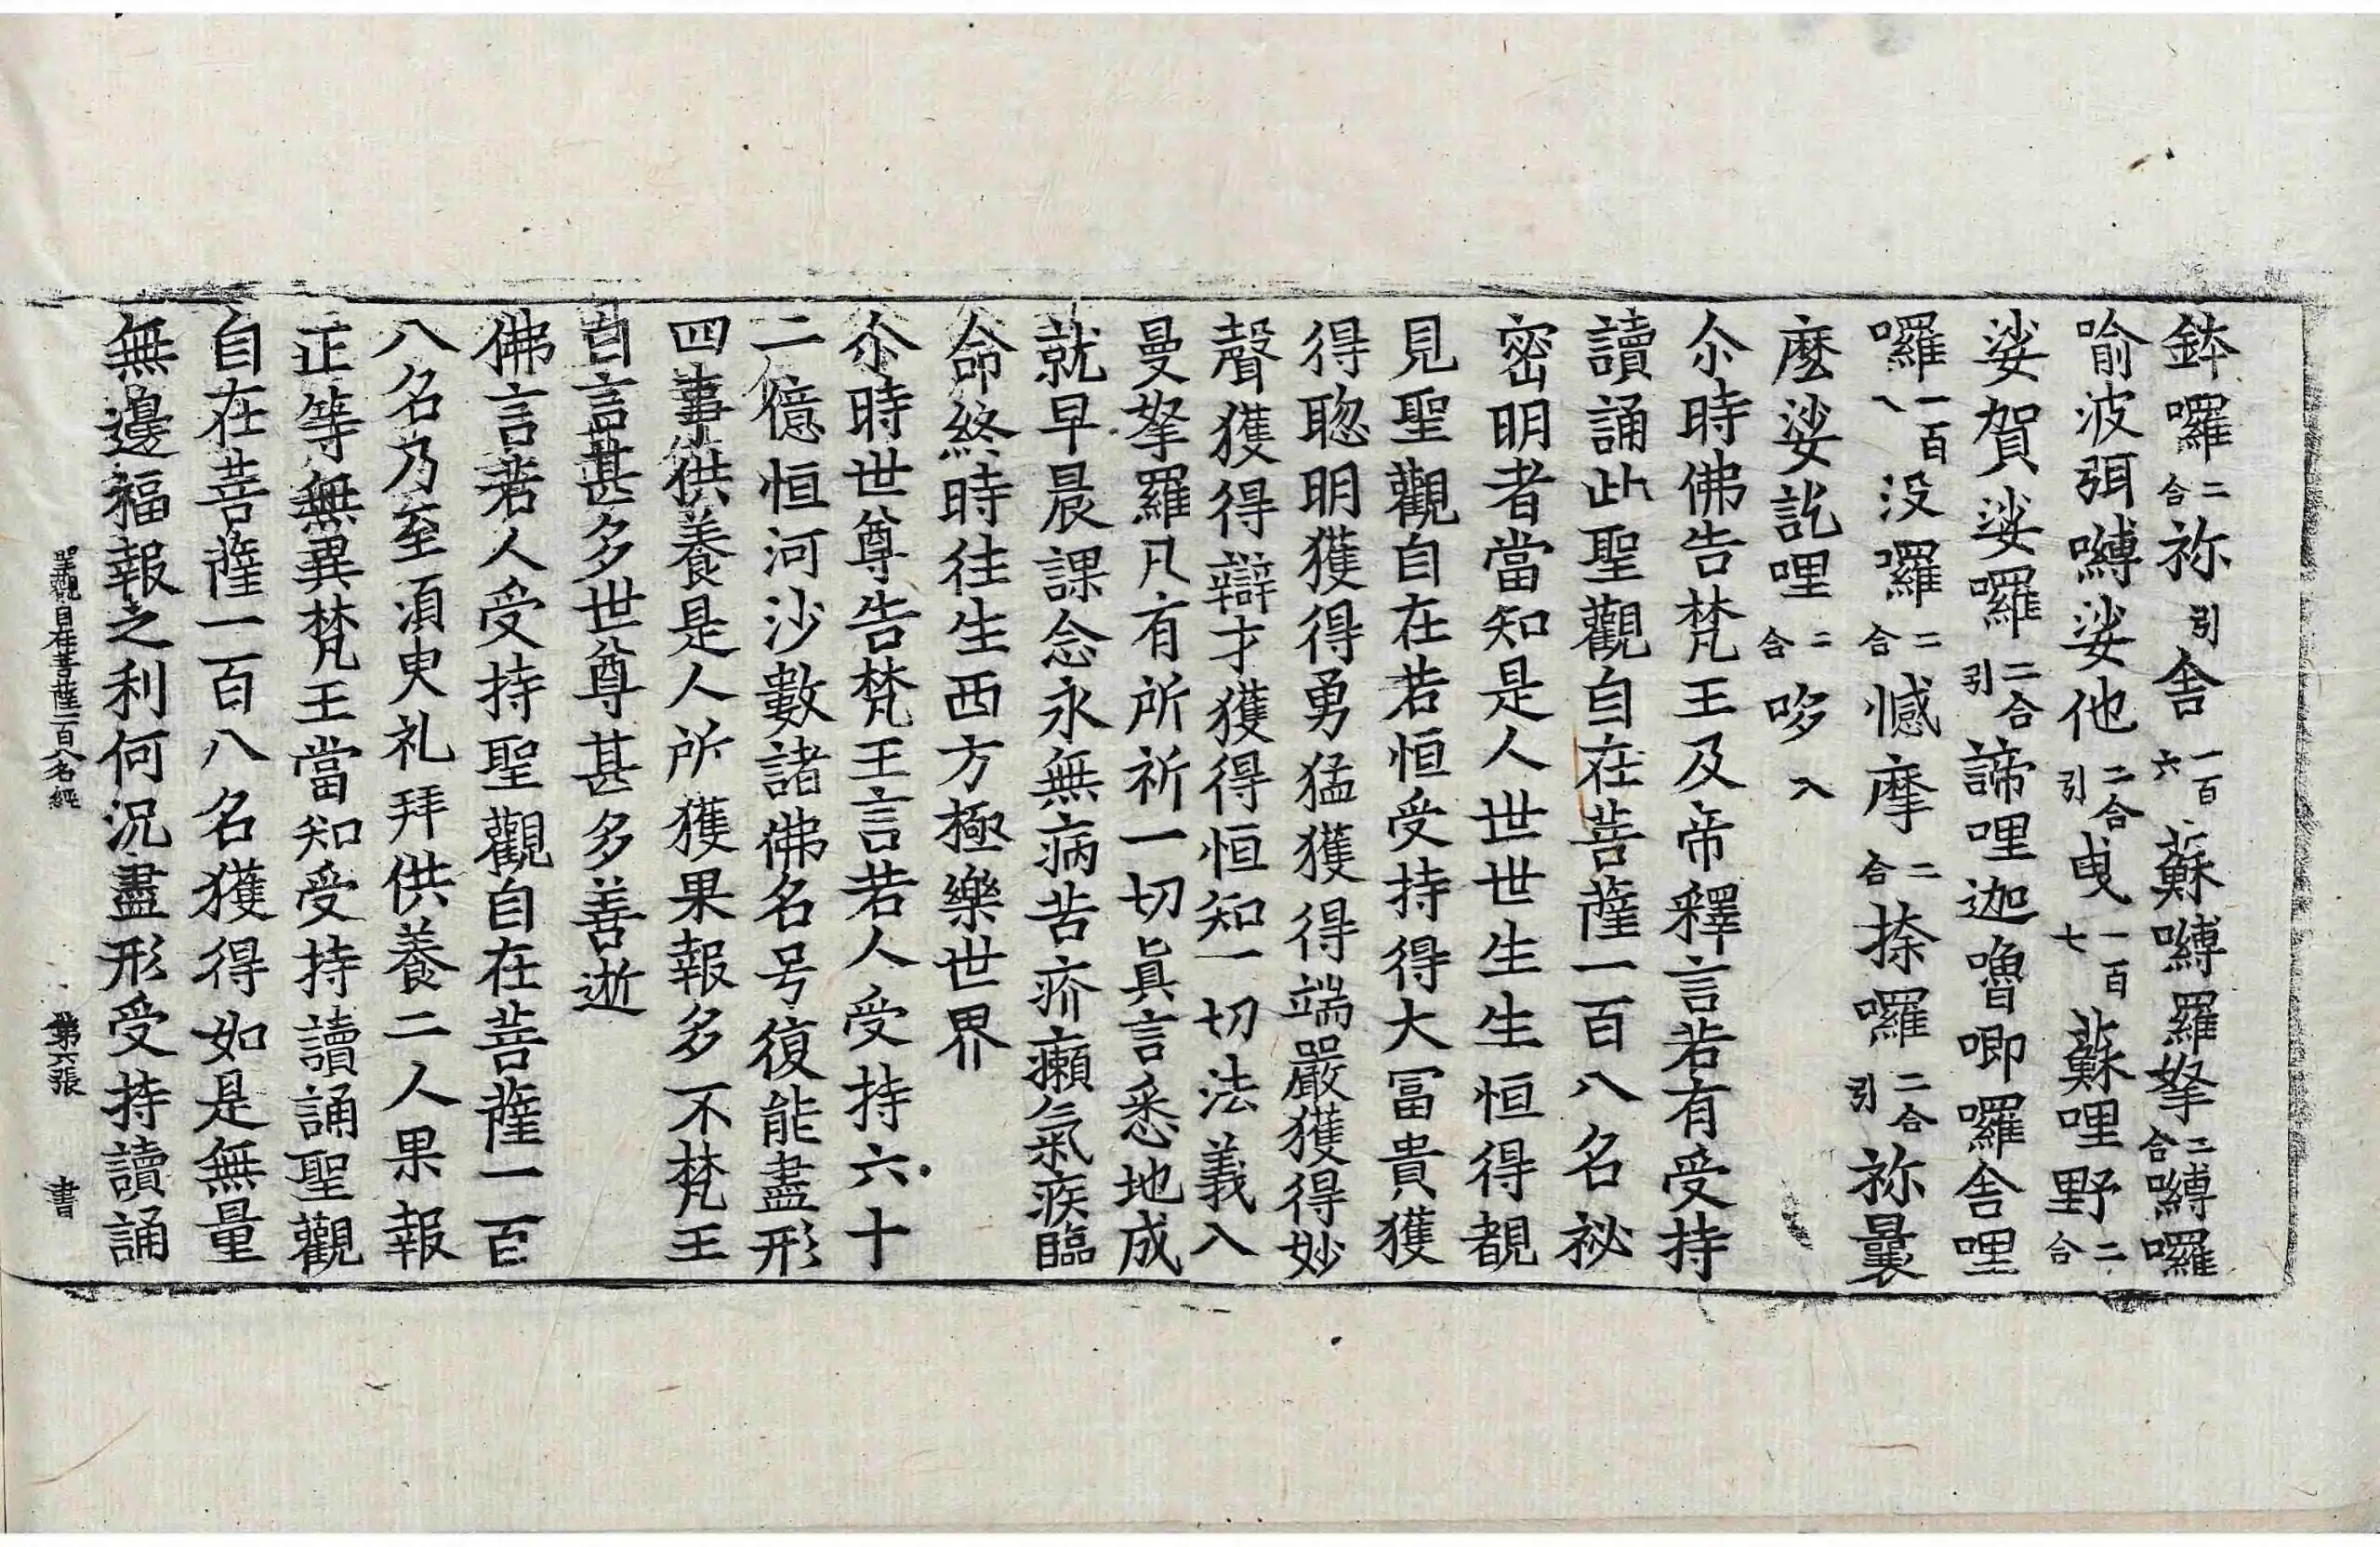 鉢囉二合祢引舎一百六蘇嚩羅拏二合嚩囉
喻波弭嚩娑他二合引曳一百七蘇哩野二合
娑賀娑囉二合引諦哩迦嚕唧囉舎哩
囉一百八没羅二合憾摩二合捺囉二合引祢曩
麼娑訖哩二合哆入
尒時佛告梵王及帝釋言若有受持
讀誦此聖觀自在菩薩一百八名祕
密明者當知是人世世生生恒得覩
見聖觀自在若恒受持得大冨貴獲
得聦明獲得勇猛獲得端嚴獲得妙
聲獲得辯才獲得恒知一切法義入
曼拏羅凡有所祈一切眞言悉地成
就早晨課念永無病苦疥癩氣疾臨
命終時往生西方極樂世界
尒時世尊告梵王言若人受持六十
二億恒河沙數諸佛名号復能盡形
四事供養是人所獲果報多不梵王
白言甚多世尊甚多善逝
佛言若人受持聖觀自在菩薩一百
八名乃至湏臾礼拜供養二人果報
正等無異梵王當知受持讀誦聖觀
自在菩薩一百八名獲得如是無量
無邊福報之利何況盡形受持讀誦
聖觀自在菩薩一百八名經 第六張 書